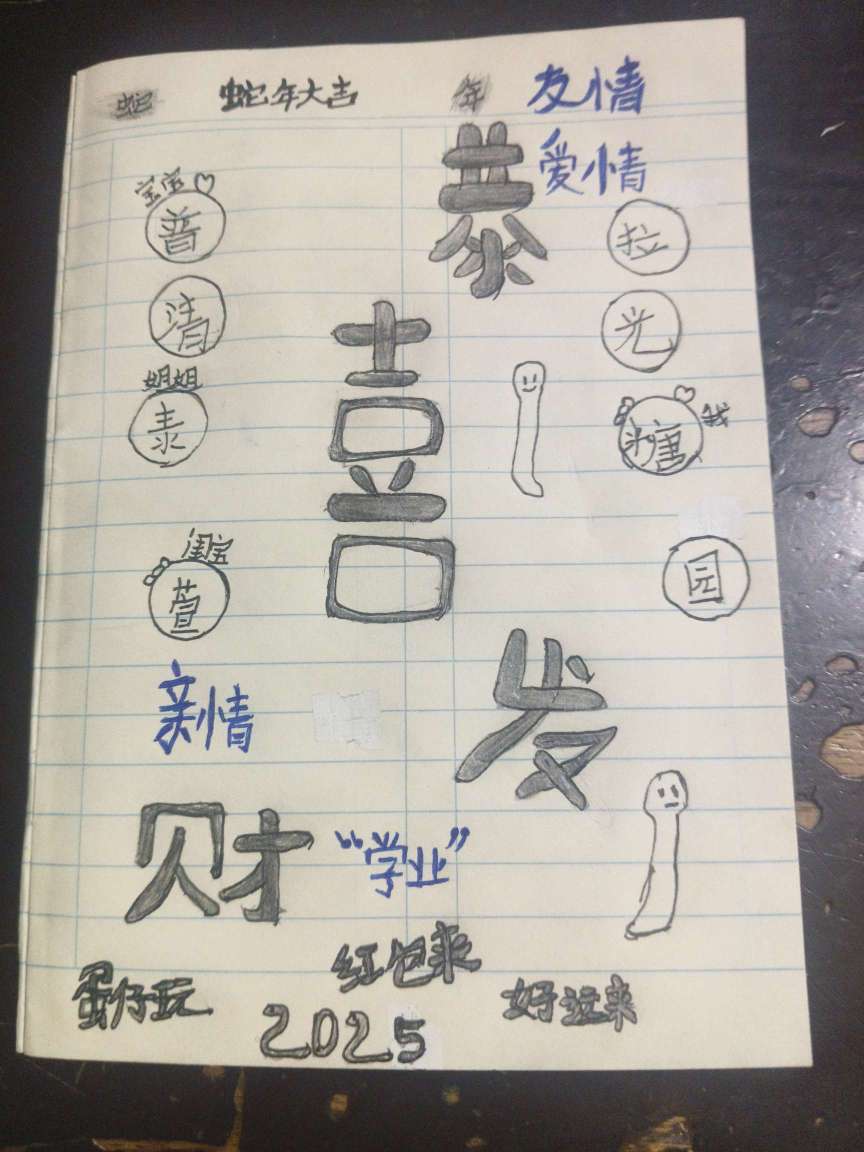 蛇 蛇年大吉 年 友情
爱情
恭
宝宝
普
拉
清
光
喜
姐姐
泰
糖 我
闺宝
萱
园
亲情
发
财
“学业”
红包来
蛋仔玩
好运来
2025